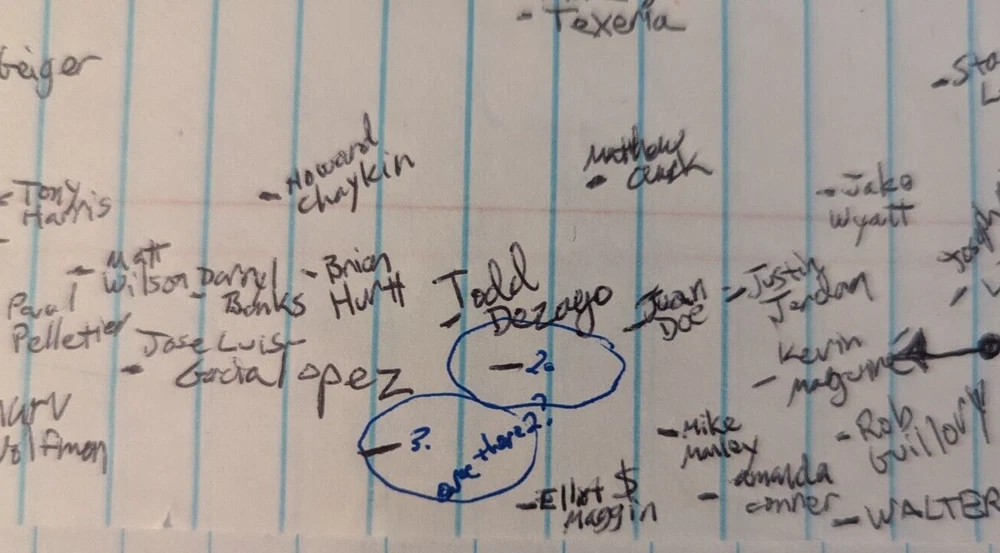 - Texeria
Geiger
- Sta
- Howard
Chaykin
- Mathew
- Tony
Harris
- Jake
Wyatt
- Matt
Wilson
Darryl
- Banks
- Brian
Hurtt
Todd
- Dezago
- Juan
Doe
- Justin
Jordan
Paul
Pelletier
- Jose Luis
Garcia Lopez
- 2.
- Kevin
Maguire
- 3.
are there 2?
- Mike
Manley
- Rob
Guillory
- Elliot $
Maggin
- amanda
conner
- WALTER